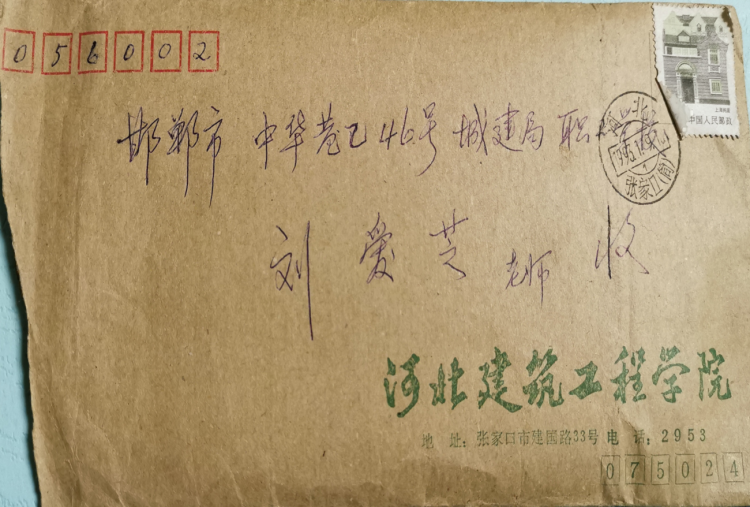 056002
上海民居
中国人民邮政
邯郸市 中华巷乙46号 城建局 职
河北
1995.1
张家口
刘爱芝 老师 收
河北建筑工程学院
地 址：张家口市建国路33号 电 话：2953
075024